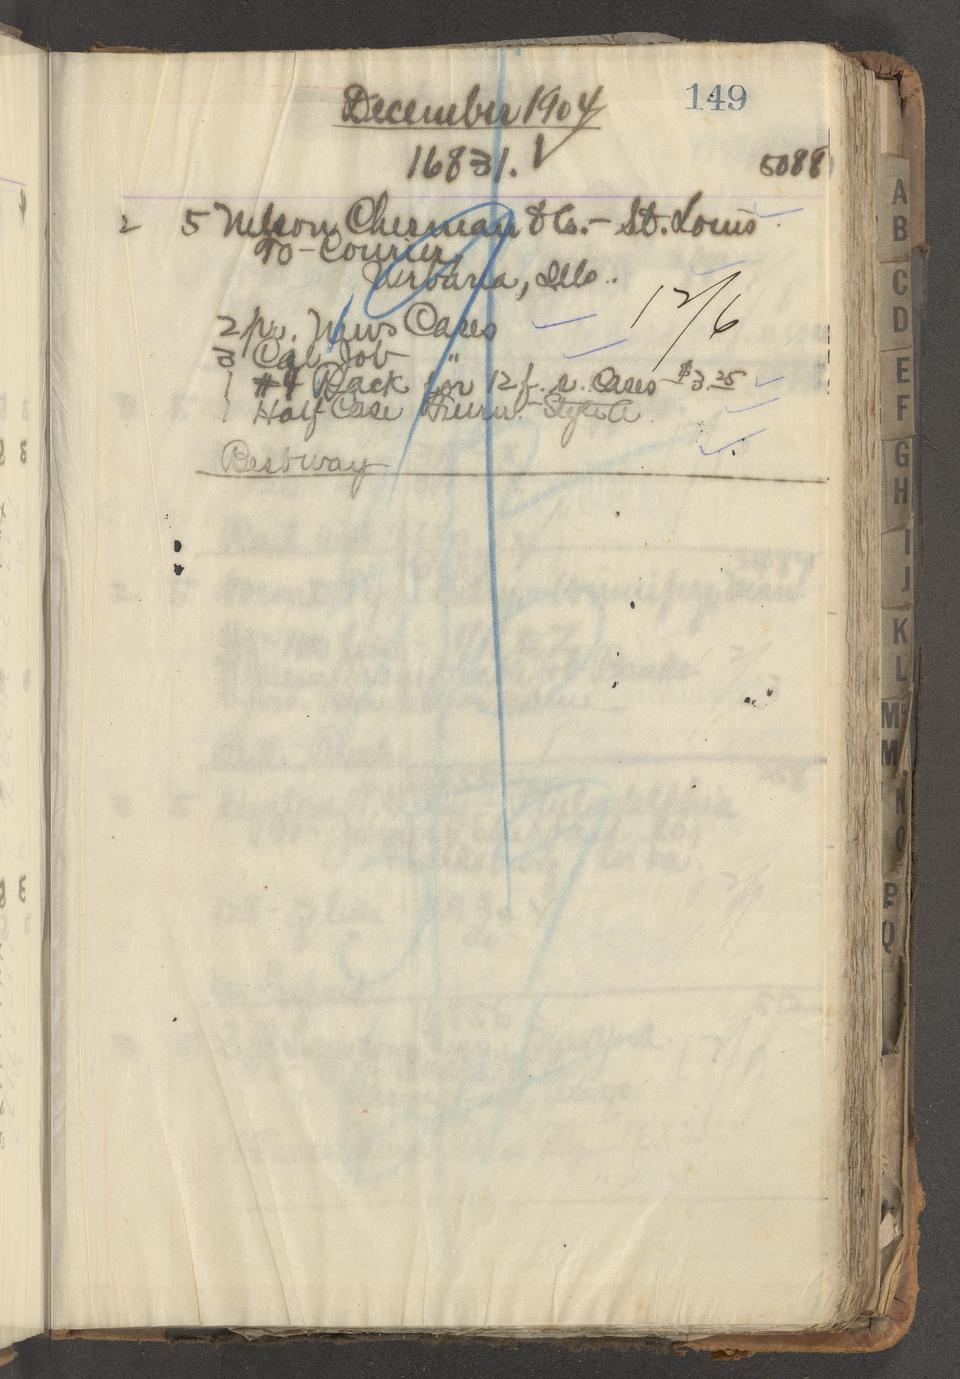 December 1904 149
16831. √ 5088
2 5 Nelson Chesman & Co. - St. Louis
To - Courier,
Urbana, Ills.
2 pr. News Cases 12/6
3 Cal Job "
1 #4 Rack for 12 f. s. Cases $3.25
1 Half Case Furn. Style A.
Bestway
A
B
C
D
E
F
G
H
I
J
K
L
Mc
M
N
O
P
Q